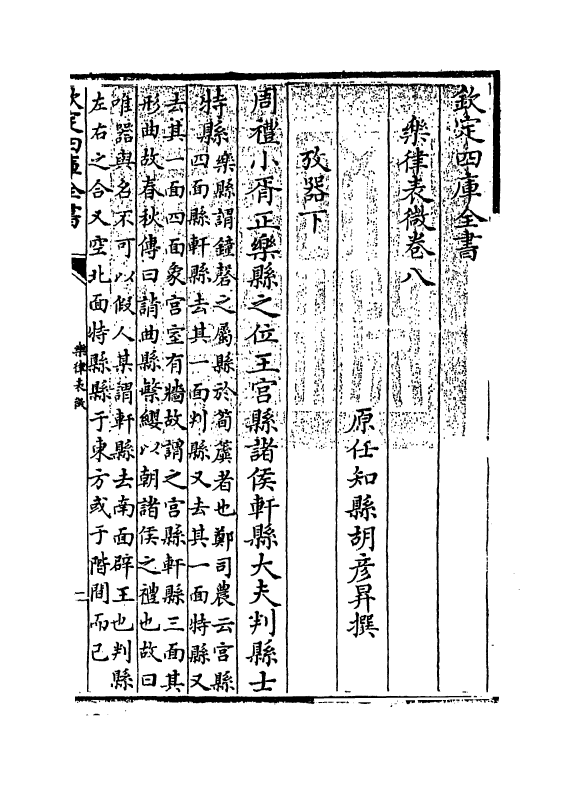 欽定四庫全書
樂律表微卷八
原任知縣胡彦昇撰
攷器下
周禮小胥正樂縣之位王宫縣諸侯軒縣大夫判縣士
特縣樂縣謂鐘磬之屬縣於筍簴者也鄭司農云宫縣
四面縣軒縣去其一面判縣又去其一面特縣又
去其一面四面象宫室有牆故謂之宫縣軒縣三面其
形曲故春秋傳曰請曲縣繁纓以朝諸侯之禮也故曰
唯器與名不可以假人某謂軒縣去南面辟王也判縣
左右之合又空北面特縣縣于東方或于階間而已
欽定四庫全書
樂律表微
二